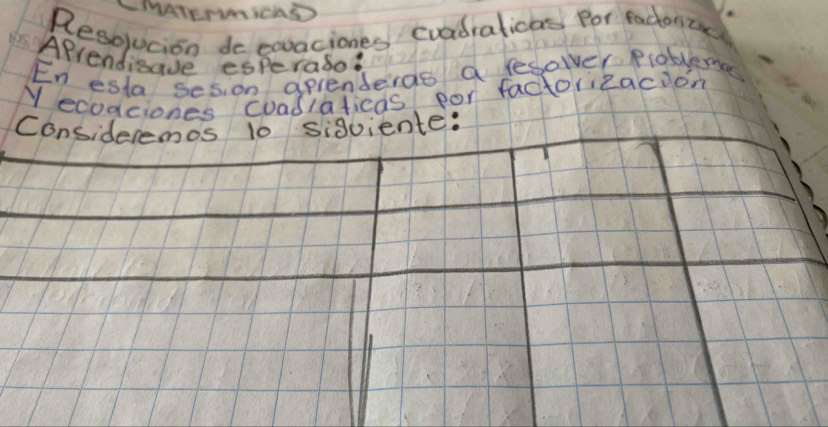 MATEMATICAS
Resolución de ecuaciones cuadraticas Por
Aprendisaue esperado:
En esta sesion aprenderas a resolver Problemas
Y ecuaciones cuadraticas por factorización
Consideremos lo siguiente: